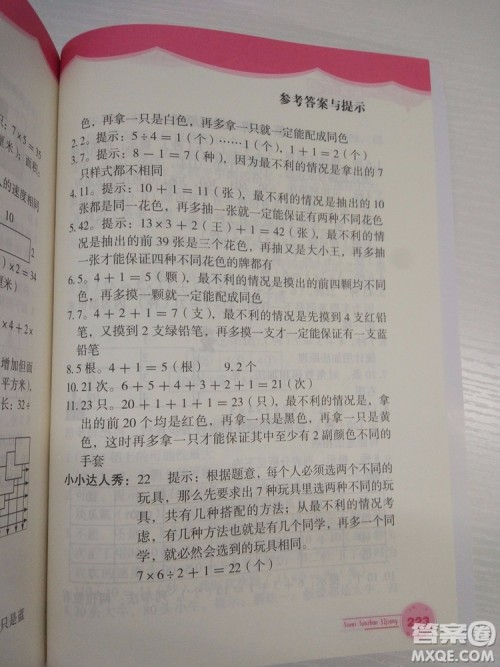 参考答案与提示
色，再拿一只是白色，再多拿一只就一定能配成同色
2.2。提示：5÷4＝1（个）……1（个），1＋1＝2（个）
3.7。提示：8－1＝7（种），因为最不利的情况是拿出的7
只样式都不相同
4.11。提示：10＋1＝11（张），最不利的情况是抽出的10
张都是同一花色，再多抽一张就一定能保证有两种不同花色
5.42。提示：13×3＋2（王）＋1＝42（张），最不利的
情况是抽出的前39张是三个花色，再抽又是大小王，再多抽
一张才能保证四种不同花色的牌都有
6.5。4＋1＝5（颗），最不利的情况是摸出的前四颗均不同
色，再多摸一颗就一定能配成同色
7.7。4＋2＋1＝7（支），最不利的情况是先摸到4支红铅
笔，又摸到2支绿铅笔，再多摸一支才一定能保证有一支蓝
铅笔
8.5根。4＋1＝5（根） 9.2个
10.21次。6＋5＋4＋3＋2＋1＝21（次）
11.23只。20＋1＋1＋1＝23（只），最不利的情况是，拿
出的前20个均是红色，再拿一只是黑色，再拿一只是黄
色，这时再多拿一只才能保证其中至少有2副颜色不同的
手套
小小达人秀：22 提示：根据题意，每个人必须选两个不同的
玩具，那么先要求出7种玩具里选两个不同的玩
具，共有几种搭配的方法；从最不利的情况考
虑，有几种方法也就是有几个同学，再多一个同
学，就必然会选到的玩具相同。
7×6÷2＋1＝22（个）
233
只。7×5＝35
的速度相同
10
2
）×2＝34
×4＋2×
增加但面
平方米）
长：32÷
只是蓝
答案圈
MXQE.COM